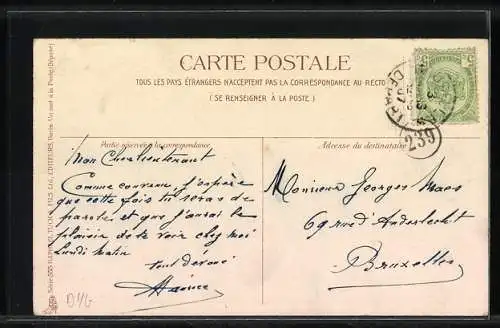 CARTE POSTALE
TOUS LES PAYS ÉTRANGERS N'ACCEPTENT PAS LA CORRESPONDANCE AU RECTO
( SE RENSEIGNER À LA POSTE )
Partie réservée à la correspondance
Adresse du destinataire
Mon Cher lieutenant
Comme convenu, j'espère
que cette fois tu seras de
parole, et que j'aurai le
plaisir de te voir chez moi
Lundi matin
tout dévoué
Monsieur Georges Maes
69 rue d'Anderlecht
Bruxelles
239
RAPHAEL TUCK & FILS